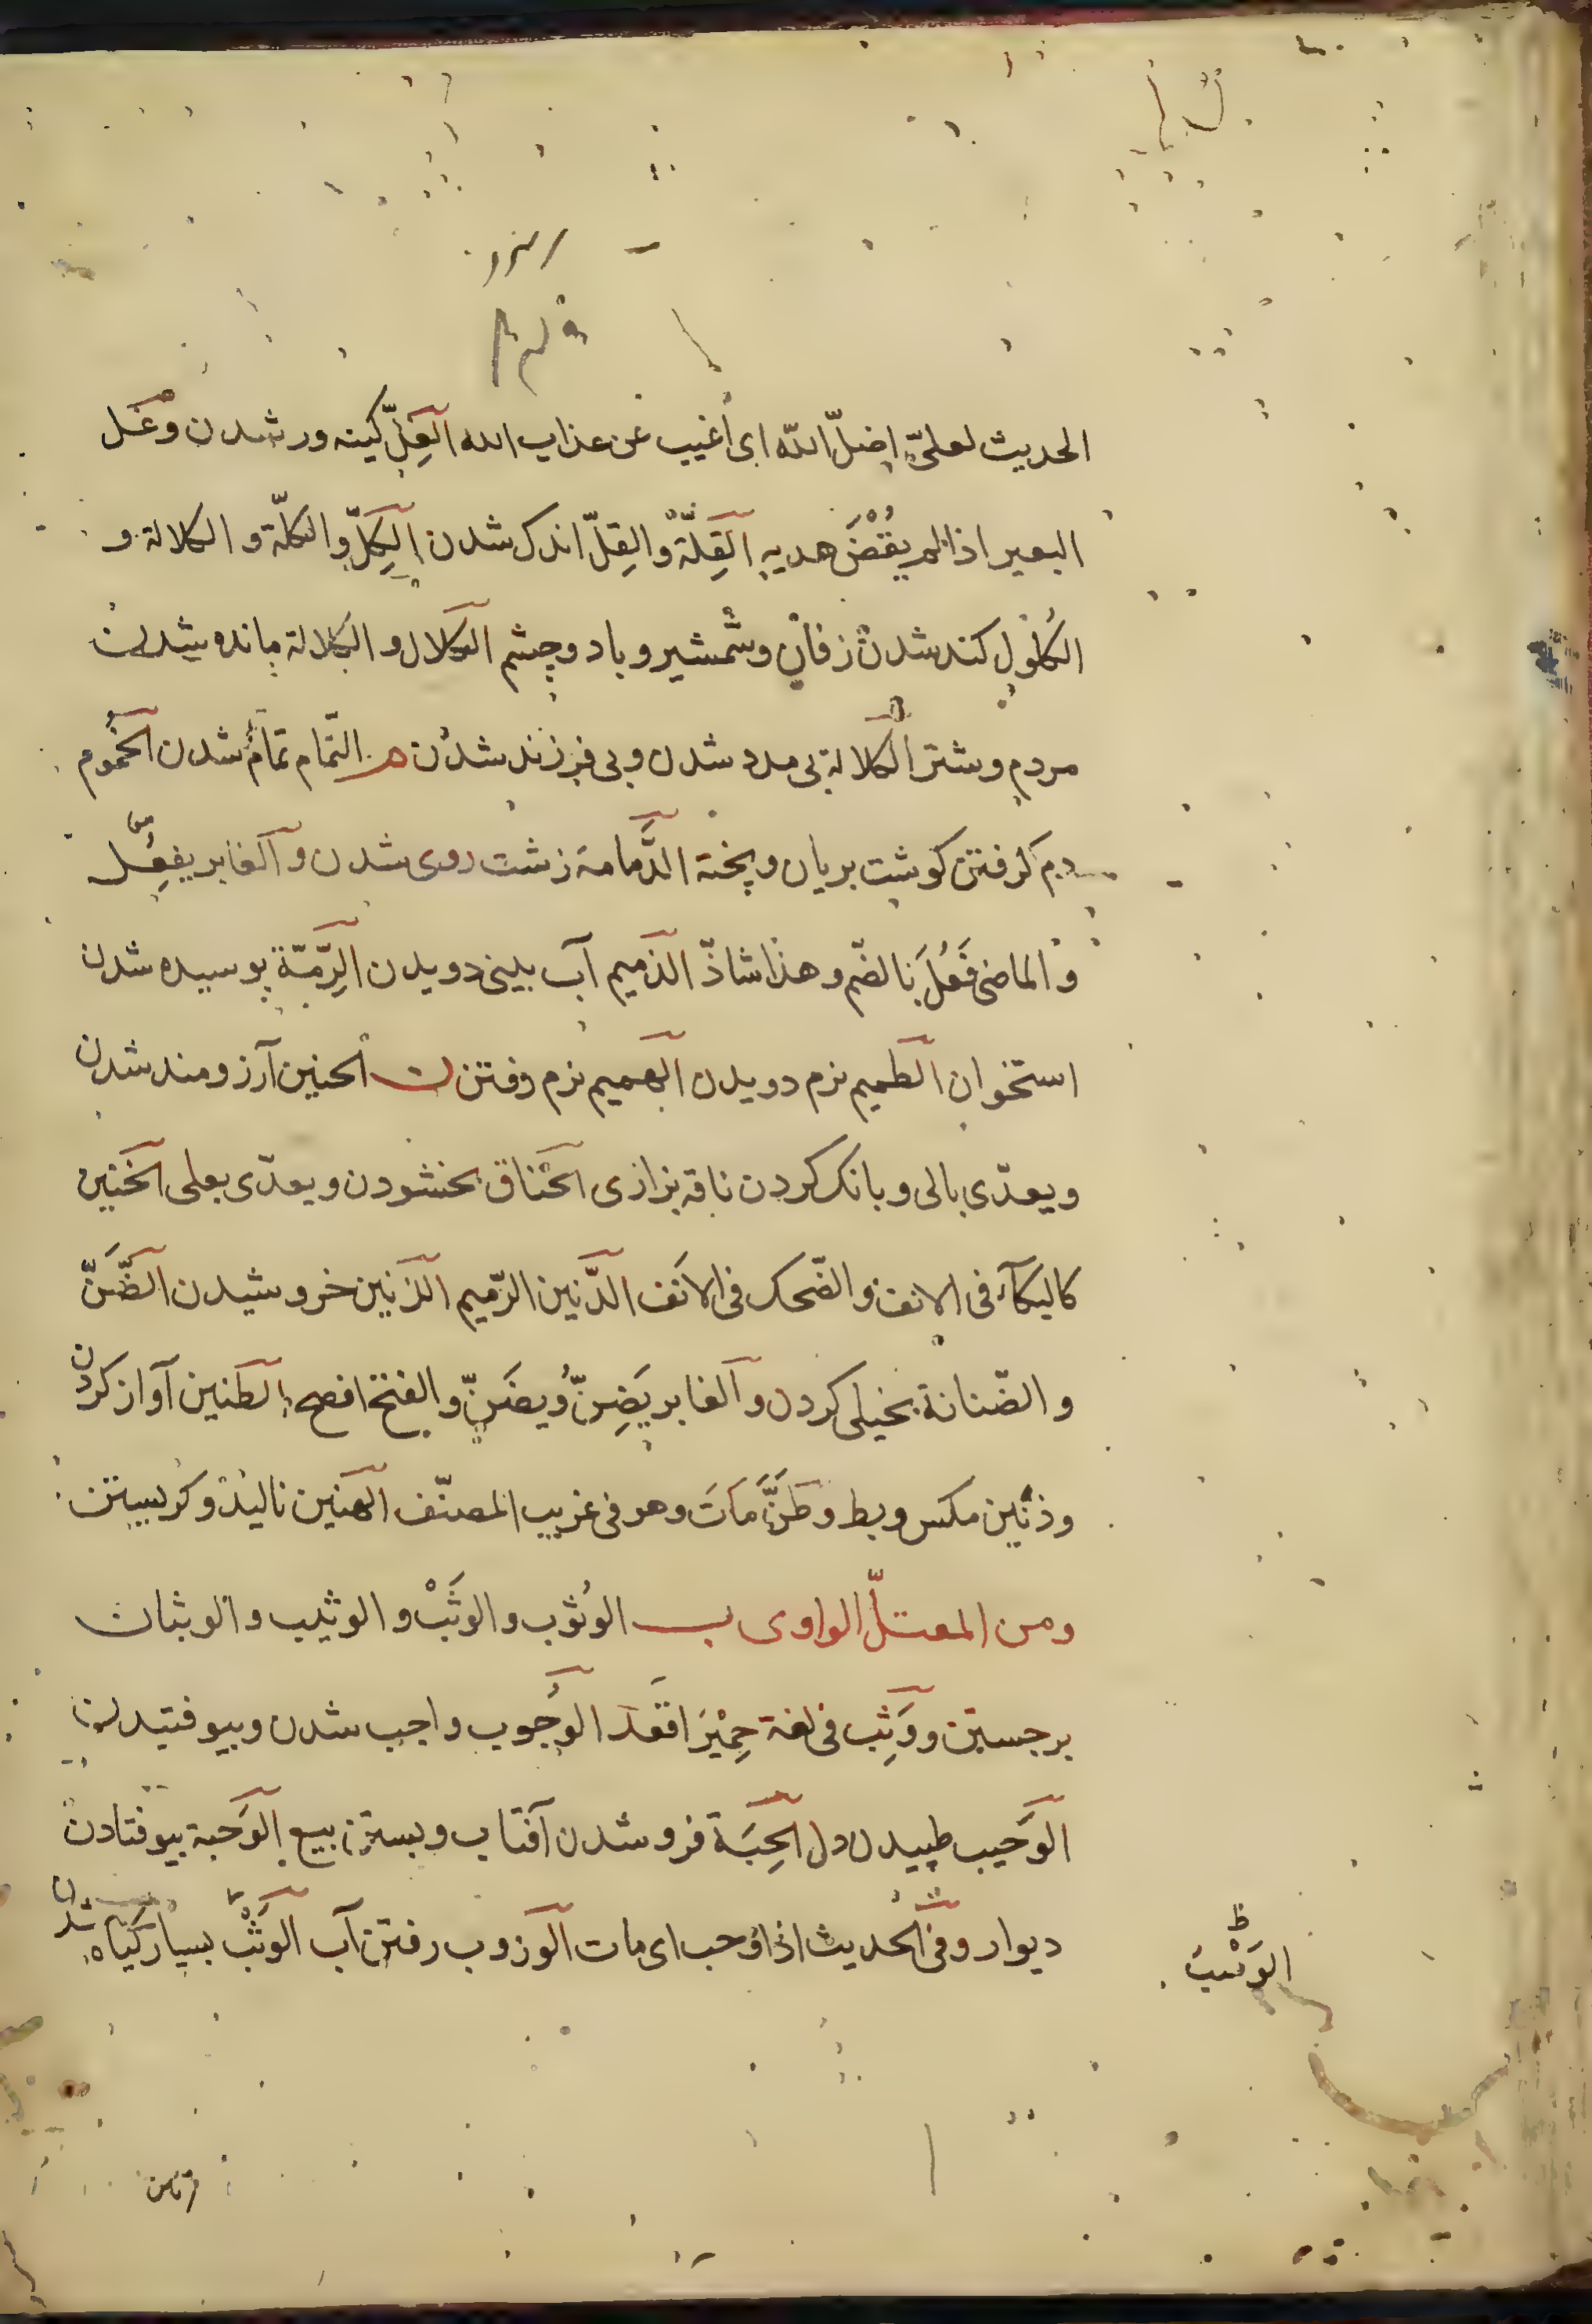 الحدیث لعلّی اضلّ الله ای اغیب عن عذاب الله الغِلّ کینه ور شدن و غلّ
البعیر اذا لم یقض هدیه القِلّة والقِلّ اندک شدن الکِلّ والکلّة و الکلالة و
الکلول کند شدن زفان و شمشیر و باد و چشم الکلال و الکلالة مانده شدن
مردم و شتر الکلالة بی مدد شدن و بی فرزند شدن م التّمام تمام شدن الخُموم
دم گرفتن کوشت بریان و پخته الدَّمامة زشت روی شدن و الغابر یفعِل
و الماضی فَعُلَ بالضم و هذا شاذّ الذمیم آب بینی دویدن الرِّمّة پوسیده شدن
استخوان الطمیم نرم دویدن الهمیم نرم رفتن ن الحنین آرزومند شدن
و یعدّی بالی و بانک کردن ناقه بزاری الحنان بخشودن و یعدّی بعلی الخنین
کالبکآء فی الانف و الضّحک فی الانف الذّنین الذّمیم الرنین خروشیدن الضَّنّ
و الضّنانة بخیلی کردن و الغابر یَضِنّ و یضَنّ و الفتح افصح الطنین آواز کردن
و ذنین مکس و بط و طَنَّ مَاتَ و هو فی غریب المصنّف الهنین نالیدن و کریستن
و من المعتلّ الواوی ب الوُثوب و الوَثْب و الوثیب و الوثبان
برجستن و وَثِب فی لغة حِمْیَر اقعد الوُجوب واجب شدن و بیوفتیدن
الوَجیب طپیدن دل الجِبَة فرو شدن آفتاب و بستن بیع الوَجبة بیوفتادن
دیوار و فی الحدیث اذا وجب ای مات الوزوب رفتن آب الوَثْب بسیار گیاه شدن
الوَشْب